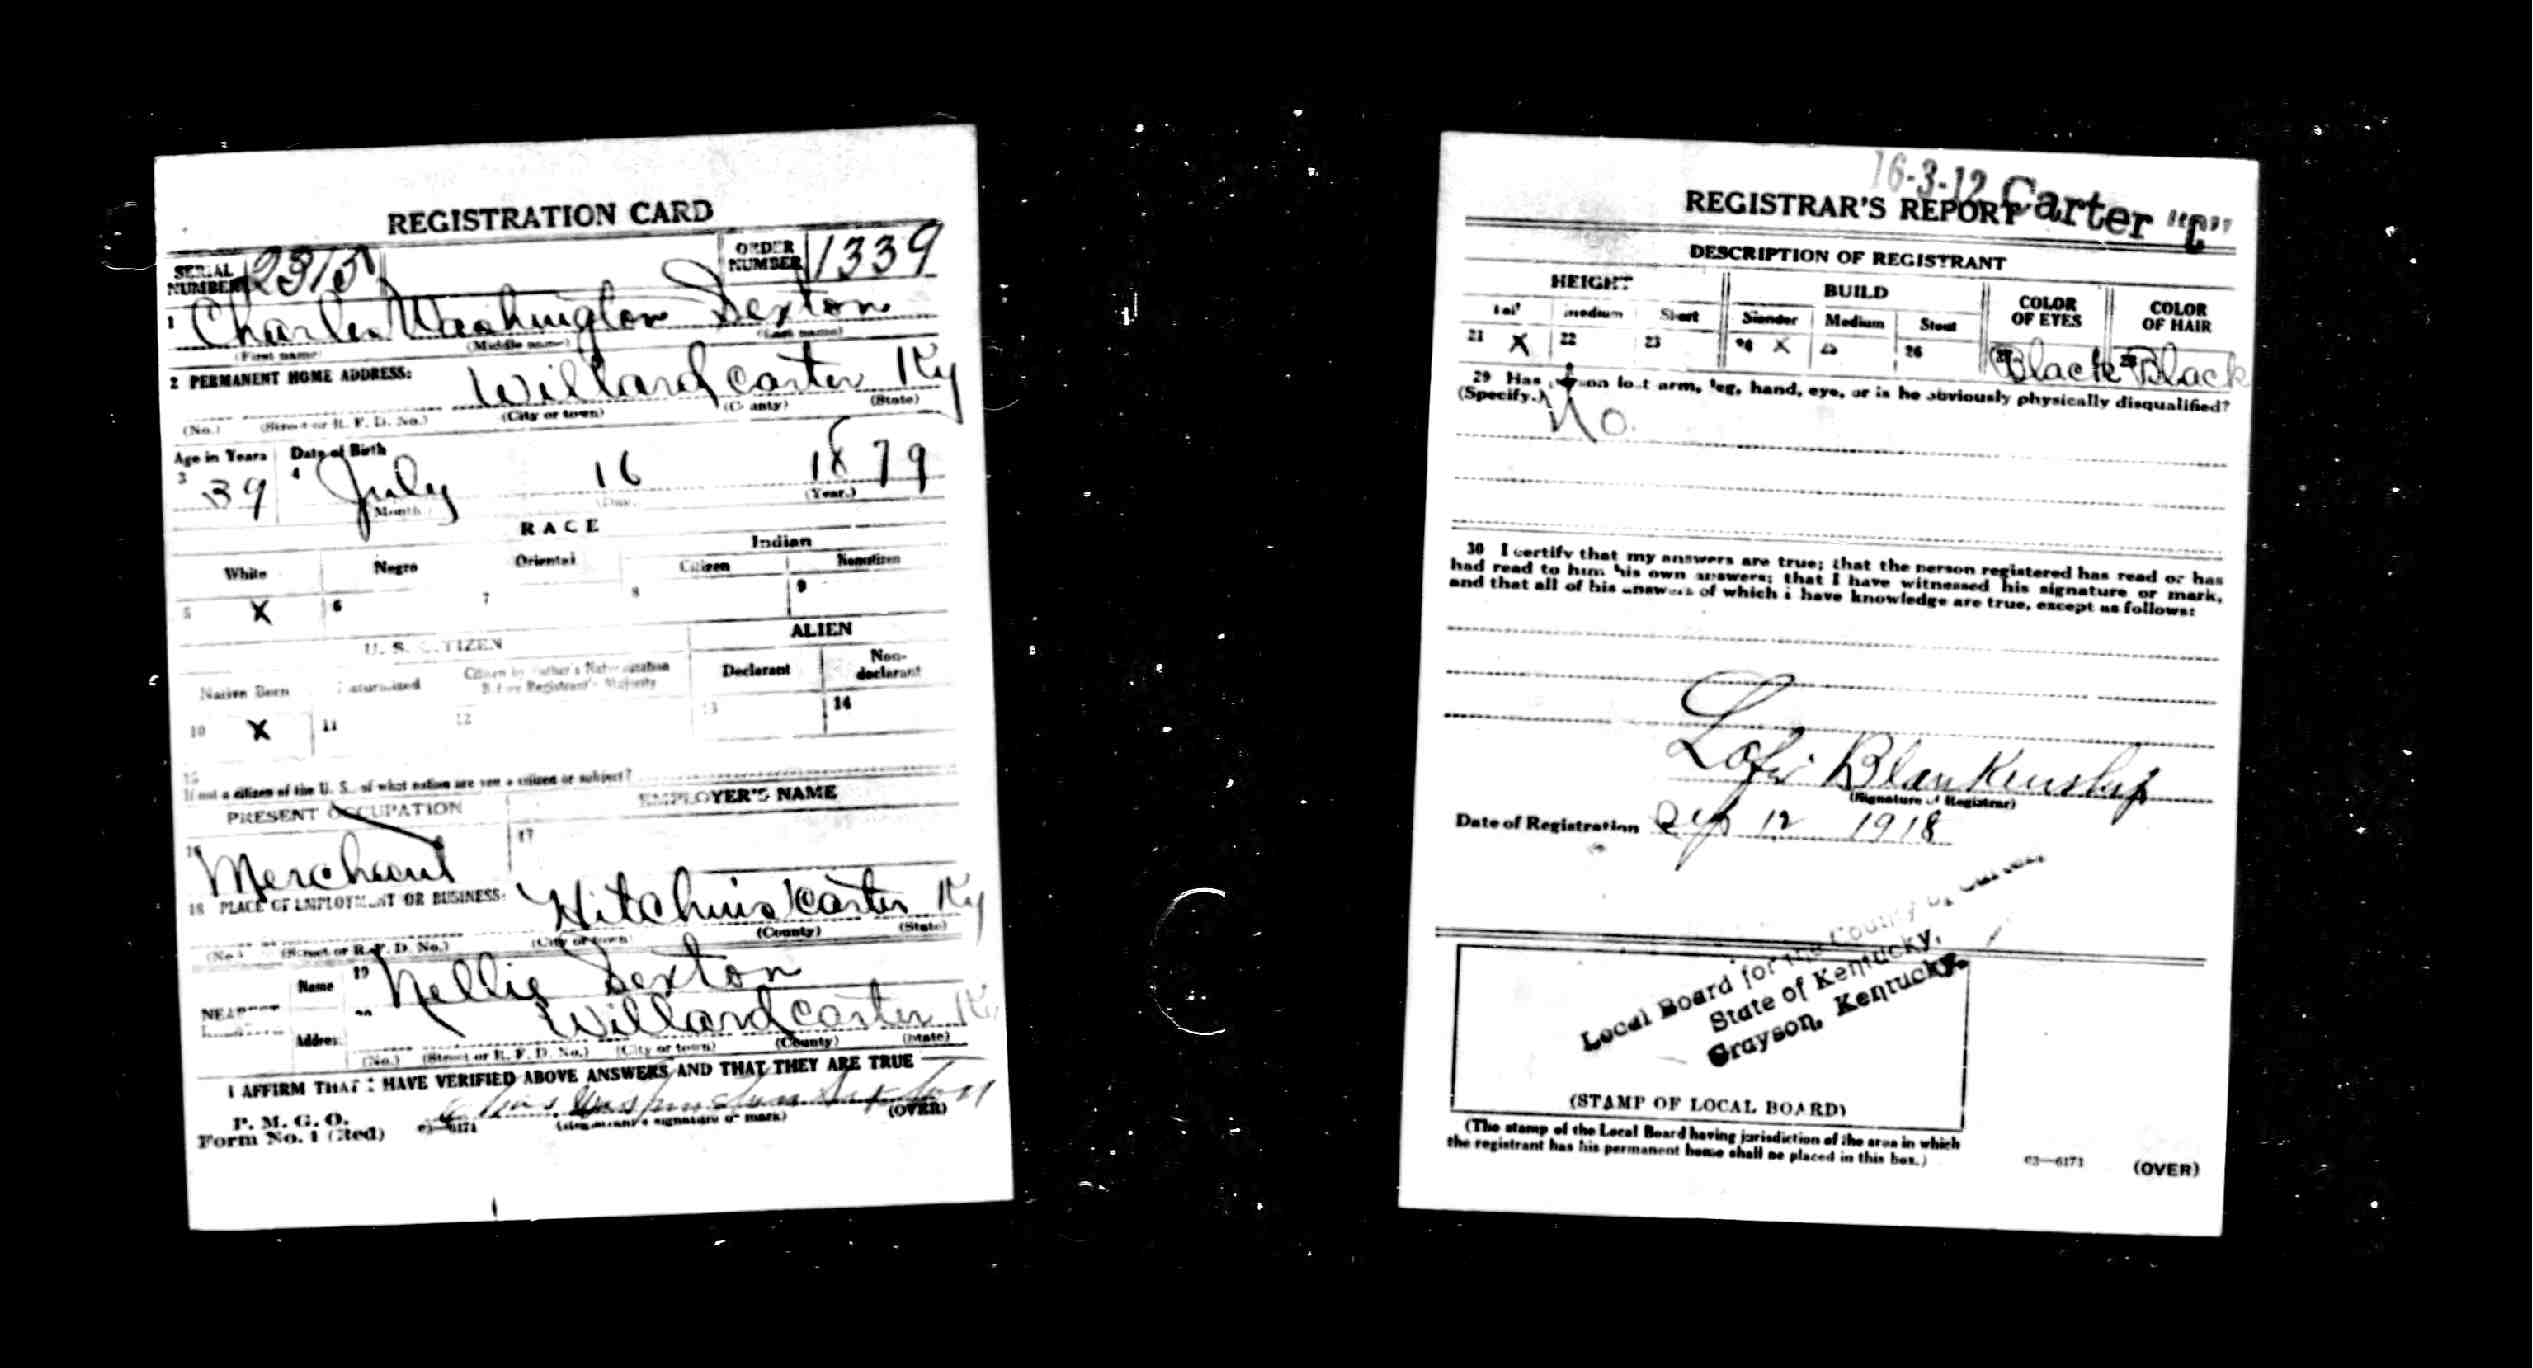 REGISTRATION CARD
SERIAL NUMBER 2315
ORDER NUMBER 1339
1 Charles Washington Sexton
(First name) (Middle name) (Last name)
2 PERMANENT HOME ADDRESS:
Willard Carter Ky
(No.) (Street or R. F. D. No.) (City or town) (County) (State)
Age in Years Date of Birth
3 39 4 July 16 1879
(Month) (Day) (Year.)
RACE
White Negro Oriental Indian
Citizen Noncitizen
5 X 6 7 8 9
U. S. CITIZEN ALIEN
Native Born Naturalized Citizen by Father's Naturalization Before Registrant's Majority Declarant Non-declarant
10 X 11 12 13 14
15
If not a citizen of the U. S., of what nation are you a citizen or subject?
PRESENT OCCUPATION EMPLOYER'S NAME
16 Merchant 17
18 PLACE OF EMPLOYMENT OR BUSINESS:
Hitchins Carter Ky
(No.) (Street or R. F. D. No.) (City or town) (County) (State)
Name 19 Nellie Sexton
Address 20 Willard Carter Ky
(No.) (Street or R. F. D. No.) (City or town) (County) (State)
I AFFIRM THAT I HAVE VERIFIED ABOVE ANSWERS AND THAT THEY ARE TRUE
P. M. G. O.
Form No. 1 (Red)
Chas Washington Sexton
(Registrant's signature or mark) (OVER)
16-3-12 Carter "C"
REGISTRAR'S REPORT
DESCRIPTION OF REGISTRANT
HEIGHT BUILD COLOR OF EYES COLOR OF HAIR
Tall Medium Short Slender Medium Stout
21 X 22 23 24 X 25 26 27 Black 28 Black
29 Has person lost arm, leg, hand, eye, or is he obviously physically disqualified?
(Specify.) No.
30 I certify that my answers are true; that the person registered has read or has
had read to him his own answers; that I have witnessed his signature or mark,
and that all of his answers of which I have knowledge are true, except as follows:
Blankenship
(Signature of Registrar)
Date of Registration Sep 12 1918
Local Board for the County of Carter,
State of Kentucky,
Grayson, Kentucky.
(STAMP OF LOCAL BOARD)
(The stamp of the Local Board having jurisdiction of the area in which
the registrant has his permanent home shall be placed in this box.)
03—6171 (OVER)